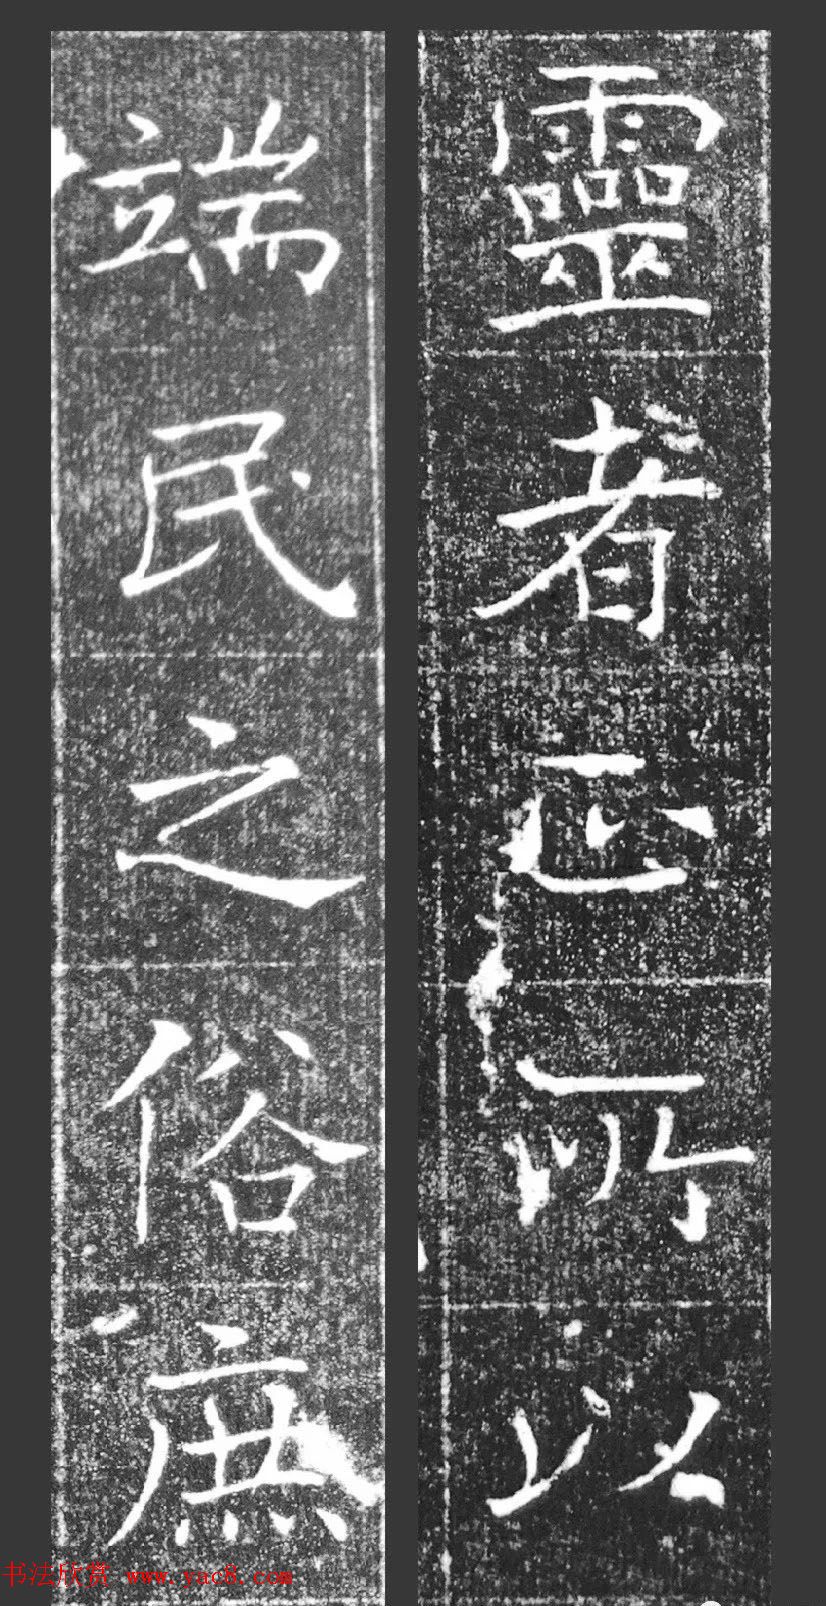 靈者正所以
端民之俗庶
书法欣赏 www.yac8.com